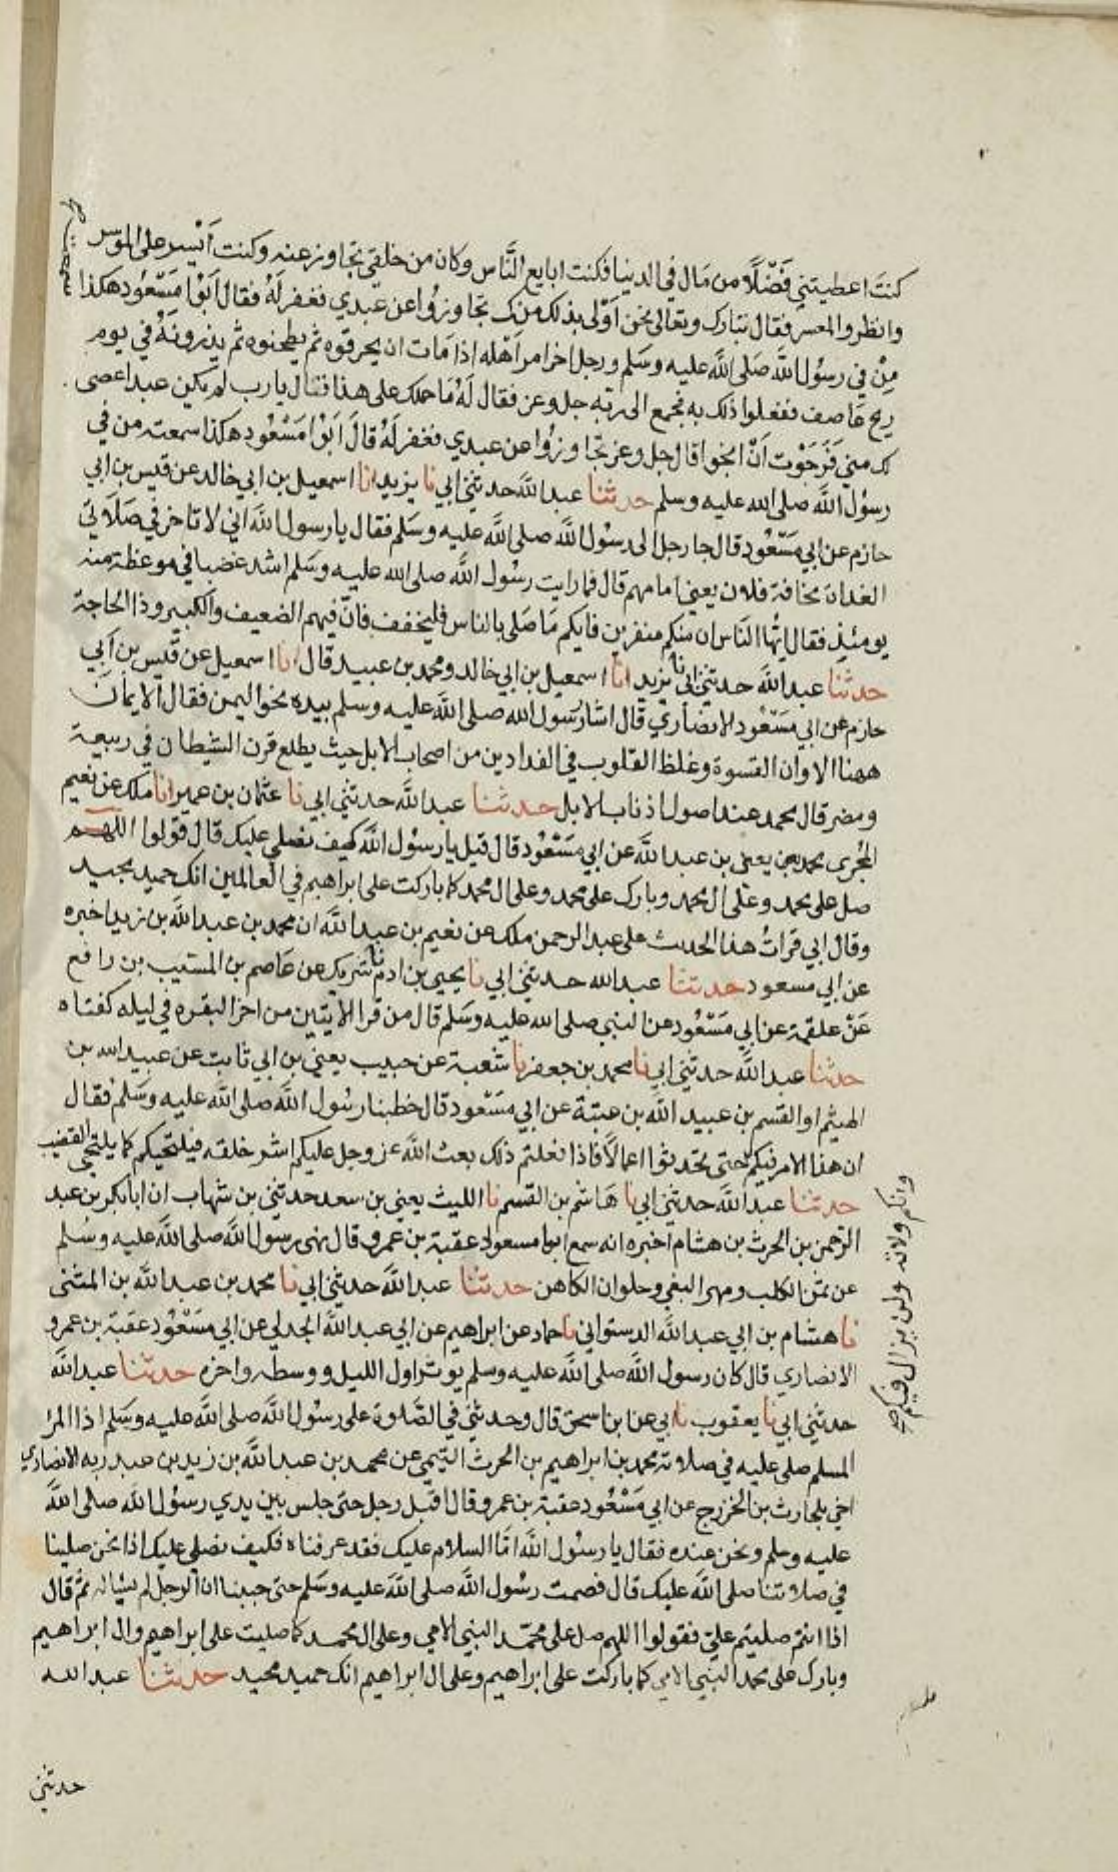 كنت اعطيتني فضلا من مال في الدنيا فكنت ابايع الناس وكان من خلقي تجاوز عنه وكنت أيسر على الموسر
وانظر والمعسر فقال تبارك وتعالى نحن أولى بذلك منك تجاوزوا عن عبدي فغفر له فقال أبو مسعود هكذا
مِنْ في رسول الله صلى الله عليه وسلم ورجل اخر امر أهله اذا مات ان يحرقوه ثم يطحنوه ثم يذرونه في يوم
ريح عاصف ففعلوا ذلك به فجمع الى ربه جل وعز فقال له ما حملك على هذا فقال يارب لم يكن عبد اعصى
لك مني فرجوت أن انجوا قال جل وعز تجاوزوا عن عبدي فغفر له قال أبو مسعود هكذا سمعته من في
رسول الله صلى الله عليه وسلم حدثنا عبد الله حدثني ابي نا يزيد انا اسمعيل بن ابي خالد عن قيس بن ابي
حازم عن ابي مسعود قال جا رجل الى رسول الله صلى الله عليه وسلم فقال يا رسول الله اني لاتاخر في صلاتي
الغداة مخافة فلان يعني امامهم قال فما رايت رسول الله صلى الله عليه وسلم اشد غضبا في موعظة منه
يومئذ فقال ايها الناس ان منكم منفرين فايكم ما صلى بالناس فليخفف فان فيهم الضعيف والكبير وذا الحاجة
حدثنا عبد الله حدثني ابي نا يزيد انا اسمعيل بن ابي خالد ومحمد بن عبيد قال انا اسمعيل عن قيس بن أبي
حازم عن ابي مسعود الانصاري قال اشار رسول الله صلى الله عليه وسلم بيده نحو اليمن فقال الايمان
ههنا الا وان القسوة وغلظ القلوب في الفدادين من اصحاب الابل حيث يطلع قرن الشيطان في ربيعة
ومضر قال محمد عند اصول اذناب الابل حدثنا عبد الله حدثني ابي نا عثمان بن عمير انا ملك عن نعيم
المجرى محمد عن يعنى بن عبد الله عن ابي مسعود قال قيل يا رسول الله كيف نصلي عليك قال قولوا اللهم
صل على محمد وعلى ال محمد وبارك على محمد وعلى ال محمد كما باركت على ابراهيم في العالمين انك حميد مجيد
وقال ابي قرات هذا الحديث على عبد الرحمن ملك عن نعيم بن عبد الله ان محمد بن عبد الله بن زيد اخبره
عن ابي مسعود حدثنا عبد الله حدثني ابي نا يحيى بن ادم نا شريك عن عاصم بن المسيب بن رافع
عن علقمة عن ابي مسعود عن النبي صلى الله عليه وسلم قال من قرا الايتين من اخر البقره في ليله كفتاه
حدثنا عبد الله حدثني ابي نا محمد بن جعفر نا شعبة عن حبيب يعني بن ابي ثابت عن عبيد الله بن
الهيثم او القسم بن عبيد الله بن عتبة عن ابي مسعود قال خطبنا رسول الله صلى الله عليه وسلم فقال
ان هذا الامر فيكم حتى تحدثوا اعمالا فاذا فعلتم ذلك بعث الله عز وجل عليكم اشر خلقه فيلتحيكم كما يلتحى القضيب
وانكم ولاته ولن يزال فيكم صح
حدثنا عبد الله حدثني ابي نا هاشم بن القسم نا الليث يعني بن سعد حدثني بن شهاب ان ابا بكر بن عبد
الرحمن بن الحرث بن هشام اخبره انه سمع ابا مسعود عقبة بن عمرو قال نهى رسول الله صلى الله عليه وسلم
عن ثمن الكلب ومهر البغي وحلوان الكاهن حدثنا عبد الله حدثني ابي نا محمد بن عبد الله بن المثنى
نا هشام بن ابي عبد الله الدستواني نا حماد عن ابراهيم عن ابي عبد الله الجدلي عن ابي مسعود عقبة بن عمرو
الانصاري قال كان رسول الله صلى الله عليه وسلم يوتر اول الليل ووسطه واخره حدثنا عبد الله
حدثني ابي نا يعقوب نا ابي عن ابن اسحق قال وحدثني في الصلوة على رسول الله صلى الله عليه وسلم اذا المرا
المسلم صلى عليه في صلاته محمد بن ابراهيم بن الحرث التيمي عن محمد بن عبد الله بن زيد بن عبد ربه الانصاري
اخي بلحارث بن الخزرج عن ابي مسعود عقبة بن عمرو قال اقبل رجل حتى جلس بين يدي رسول الله صلى الله
عليه وسلم ونحن عنده فقال يا رسول الله اما السلام عليك فقد عرفناه فكيف نصلي عليك اذا نحن صلينا
في صلاتنا صلى الله عليك قال فصمت رسول الله صلى الله عليه وسلم حتى حببنا ان الرجل لم يساله ثم قال
اذا انتم صليتم علي فقولوا اللهم صل على محمد النبي الامي وعلى ال محمد كما صليت على ابراهيم وال ابراهيم
وبارك على محمد النبي الامي كما باركت على ابراهيم وعلى ال ابراهيم انك حميد مجيد حدثنا عبد الله
حدثني